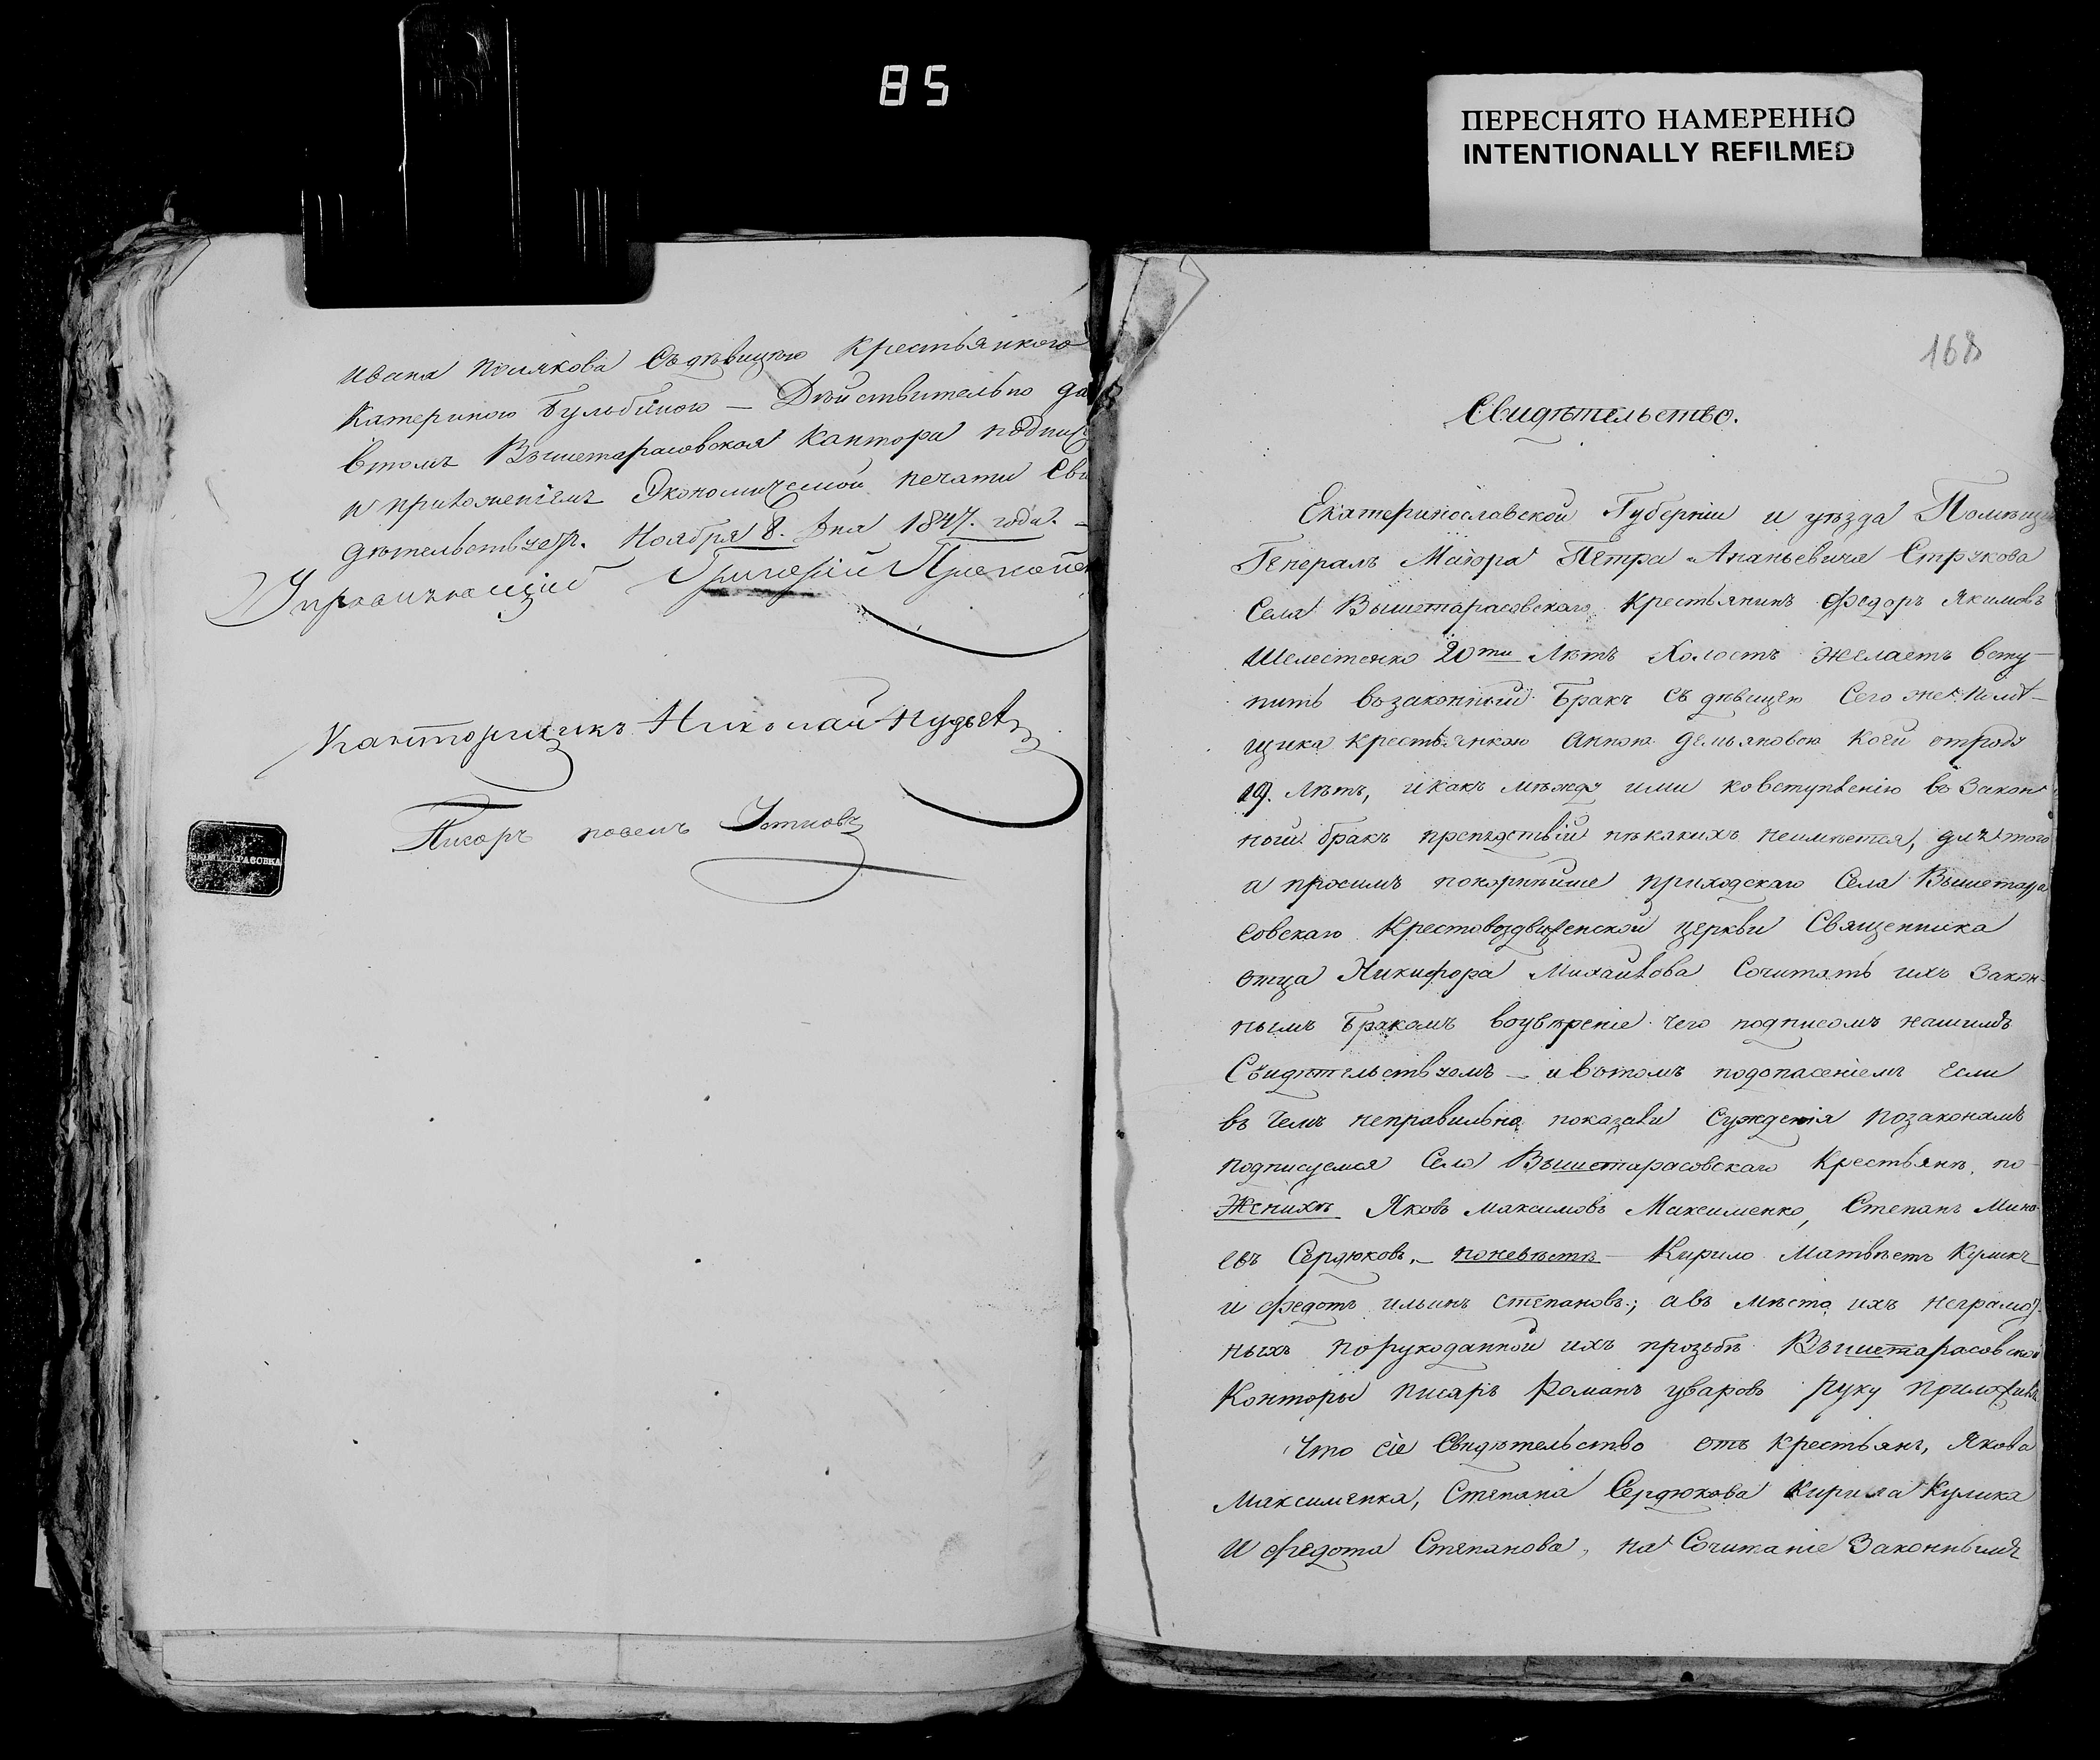 85
ПЕРЕСНЯТО НАМЕРЕННО
INTENTIONALLY REFILMED
Ивана Полякова Съ дѣвицею крестьянкою
Катериною Бульбиною — Дѣйствительно да
втомъ Вышетарасовская Кантора подпис
и приложеніемъ Экономической печати Сви
дѣтельствуетъ. Ноября 8. дня 1847. года. —
Управляющій Григорій
Канторщикъ Николай
Писарь павелъ
168
Свидѣтельство.
Екатеринославской Губерніи и уѣзда Помѣщи
Генералъ Маіора Петра Ананьевича Струкова
Села Вышетарасовскаго Крестьянинъ Федоръ Якимовъ
Шелестенко 20ти Лѣтъ Холостъ желаетъ всту-
пить взаконный Бракъ съ дѣвицею Сего же Помѣ-
щика крестьянкою Анною Демьяновою коей отроду
19. лѣтъ, икакъ между ими ковступленію въ Закон
ной бракъ препядствій нѣкакихъ неимѣется, для того
и просимъ покорнѣйше приходскаго Села Вышетара
совскаго Крестовоздвиженской церкви Священника
отца Никифора Михайлова Сочитать ихъ Закон-
нымъ Бракомъ воувѣреніе чего подписомъ нашимъ
Свидѣтельствуемъ — ивътомъ подопасеніемъ Если
въ чемъ неправильно показали Сужденія позаконамъ
подписуемся Села Вышетарасовскаго Крестьяне, по-
Женихѣ Яковъ Максимовъ Максименко, Степанъ
евъ Сердюковъ, — поневѣстѣ — Кирило Матвѣевъ Куликъ
и Федотъ ильинъ Степановъ; авъ мѣсто ихъ неграмот-
ныхъ порукоданной ихъ прозьбѣ Вышетарасовской
Конторы писарь Романъ уваровъ руку приложилъ
Что сіе Свидѣтельство отъ крестьянъ, Якова
Максименка, Степана Сердюкова Кирила Кулика
И Федота Степанова, на Сочитаніе Законнымъ